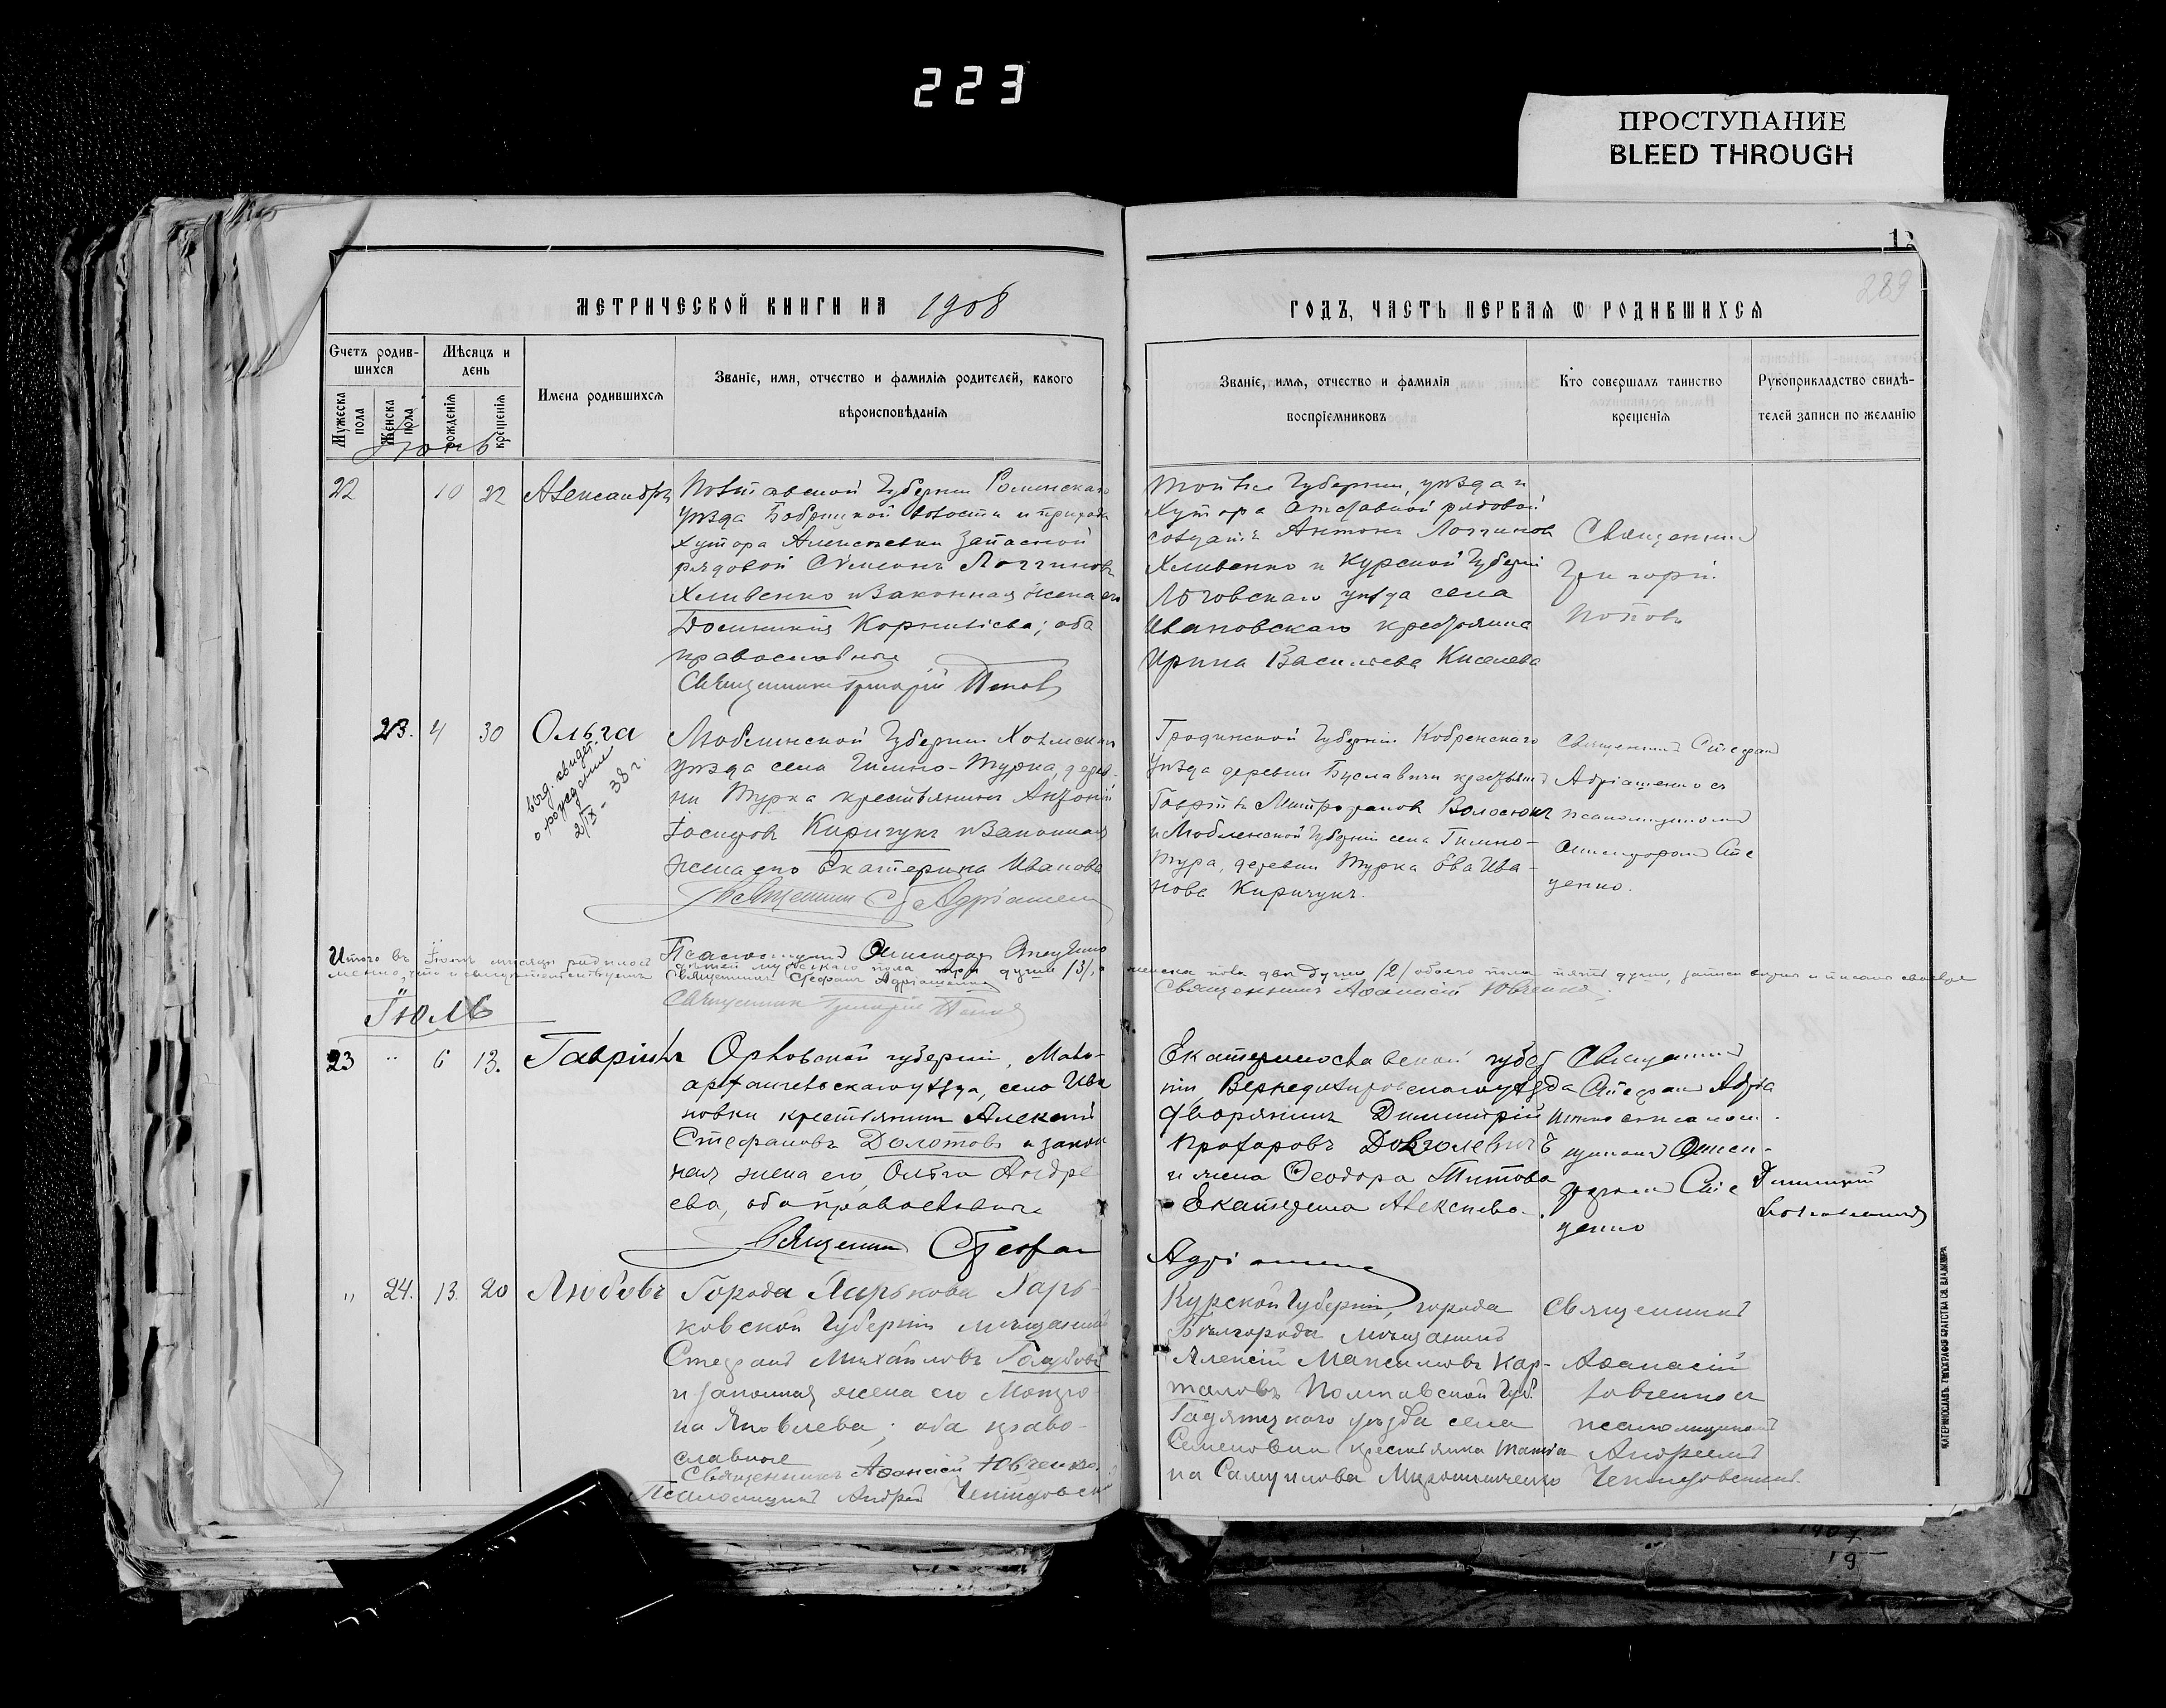 223
ПРОСТУПАНИЕ
BLEED THROUGH
12
289
МЕТРИЧЕСКОЙ КНИГИ НА 1908
ГОДЪ, ЧАСТЬ ПЕРВАЯ Ѡ РОДИВШИХСЯ
Счетъ родив-
шихся
Мѣсяцъ и
день
Мужеска пола
Женска пола
рожденія
крещенія
Имена родившихся
Званіе, имя, отчество и фамилія родителей, какого
вѣроисповѣданія
Званіе, имя, отчество и фамилія
воспріемниковъ
Кто совершалъ таинство
крещенія
Рукоприкладство свидѣ-
телей записи по желанію
Іюнь
22 10 22 Александръ
Полтавской Губерніи Роменскаго
уѣзда Бобрицкой волости и прихода
хутора Алексѣевки Запасной
рядовой Сѵмеонъ Логгиновъ
Хливенко и Законная жена его
Домникія Корниліева; оба
православные
Священникъ Григорій Поповъ
Той же Губерніи, уѣзда и
Хутора отставной рядовой
солдатъ Антонъ Логгиновъ
Хливенко и Курской Губерніи
Льговскаго уѣзда села
Ивановскаго крестьянка
Ирина Васильева Киселева
Священникъ
Григорій
Поповъ
23. 4 30 Ольга
выд. свидет.
о рождении
2/IX - 38 г.
Люблинской Губерніи Холмскаго
уѣзда села Турка, дерев-
ни Турка крестьянинъ Антоній
Іосифовъ Киричукъ и Законная
жена его Екатерина Иванова
Священникъ Адріашенко
Гродненской Губерніи Кобренскаго
уѣзда деревни крестьянинъ
Митрофановъ Волосюкъ
и Люблинской Губерніи села
Тура, деревни Турка Ева Ива-
нова Киричукъ.
Священникъ Стефанъ
Адріашенко съ
псаломщикомъ
Сте
ценко.
Псаломщикъ Александръ Стеценко
Итого въ Іюнѣ мѣсяцѣ родилось дѣтей мужескаго пола три души /3/, женска пола двѣ души /2/ обоего пола пять душъ,
Священникъ Стефанъ Адріашенко
Священникъ Аѳанасій Ювченко
Священникъ Григорій Поповъ
Іюль
23 " 6 13. Гавріилъ
Орловской губерніи, Мало-
архангельскаго уѣзда, село Ива
новки крестьянинъ Алексій
Стефановъ Долотовъ и закон
ная жена его, Ольга Андре
ева, оба православные
Священникъ Стефанъ
Адріашенко
Екатеринославской губер
ніи, Верхнеднѣпровскаго уѣзда
дворянинъ Димитрій
Прохоровъ Довголевичъ
и жена Ѳеодора Титова
Екатерина Алексѣева.
Священникъ
Стефанъ Адріа
шенко съ псалом-
щикомъ Алек-
Сте
ценко
Димитрій
" 24. 13. 20 Любовь
Города Харькова Харь-
ковской Губерніи мѣщанинъ
Стефанъ Михайловъ Голубовъ
и законная жена его Матро-
на Яковлева; оба право-
славные
Священникъ Аѳанасій Ювченко.
Псаломщикъ Андрей
Курской Губерніи, города
Бѣлгорода мѣщанинъ
Алексій Максимовъ Кар-
таловъ Полтавской Губ.
Гадячскаго уѣзда села
крестьянка Татіа
на Самуилова Мирошниченко
Священникъ
Аѳанасій
Ювченко съ
псаломщикомъ
Андреемъ
ЕКАТЕРИНОСЛАВЪ. ТИПОГРАФІЯ БРАТСТВА СВ. ВЛАДИМІРА
1907
19